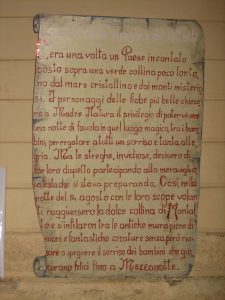 era una volta un Paese incantato
posto sopra una verde collina poco lonta
no dal mare cristallino e dai monti misterio
si. I personaggi delle fiabe più belle chiese
ro a Madre Natura il privilegio di poter vivere
una notte di favola in quel luogo magico, tra i bam
bini, per regalare a tutti un sorriso e tanta alle
gria. Ma le streghe, invidiose, decisero di
far loro dispetto partecipando alla meravigliosa
festa che si stava preparando. Così, nella
notte del 14 agosto con le loro scope volan
ti raggiunsero la dolce collina di
e si infilaron tra le antiche mura piene di
suoni e fantastiche creature senza però riu
scire a spegnere il sorriso dei bambini che gio
carono felici fino a Mezzanotte.